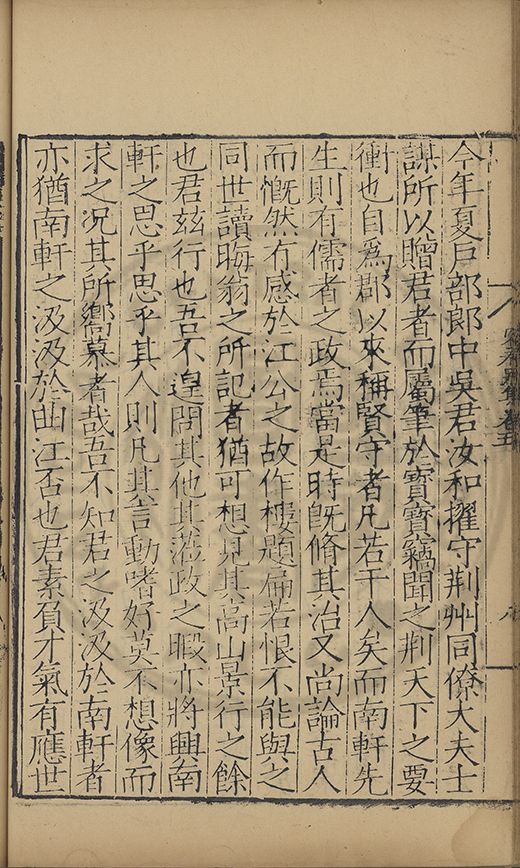 今年夏戶部郎中吳君汝和擢守荆州同僚大夫士
謀所以贈君者而屬筆於寳寳竊聞之荆天下之要
衝也自爲郡以來稱賢守者凡若干人矣而南軒先
生則有儒者之政焉當是時既脩其治又尚論古人
而慨然有感於江公之故作樓題扁若恨不能與之
同世讀晦翁之所記者猶可想見其高山景行之餘
也君兹行也吾不遑問其他其蒞政之暇亦將興南
軒之思乎思乎其人則凡其言動嗜好莫不想像而
求之况其所嚮慕者哉吾不知君之汲汲於南軒者
亦猶南軒之汲汲於曲江否也君素負才氣有應世
卷五
八